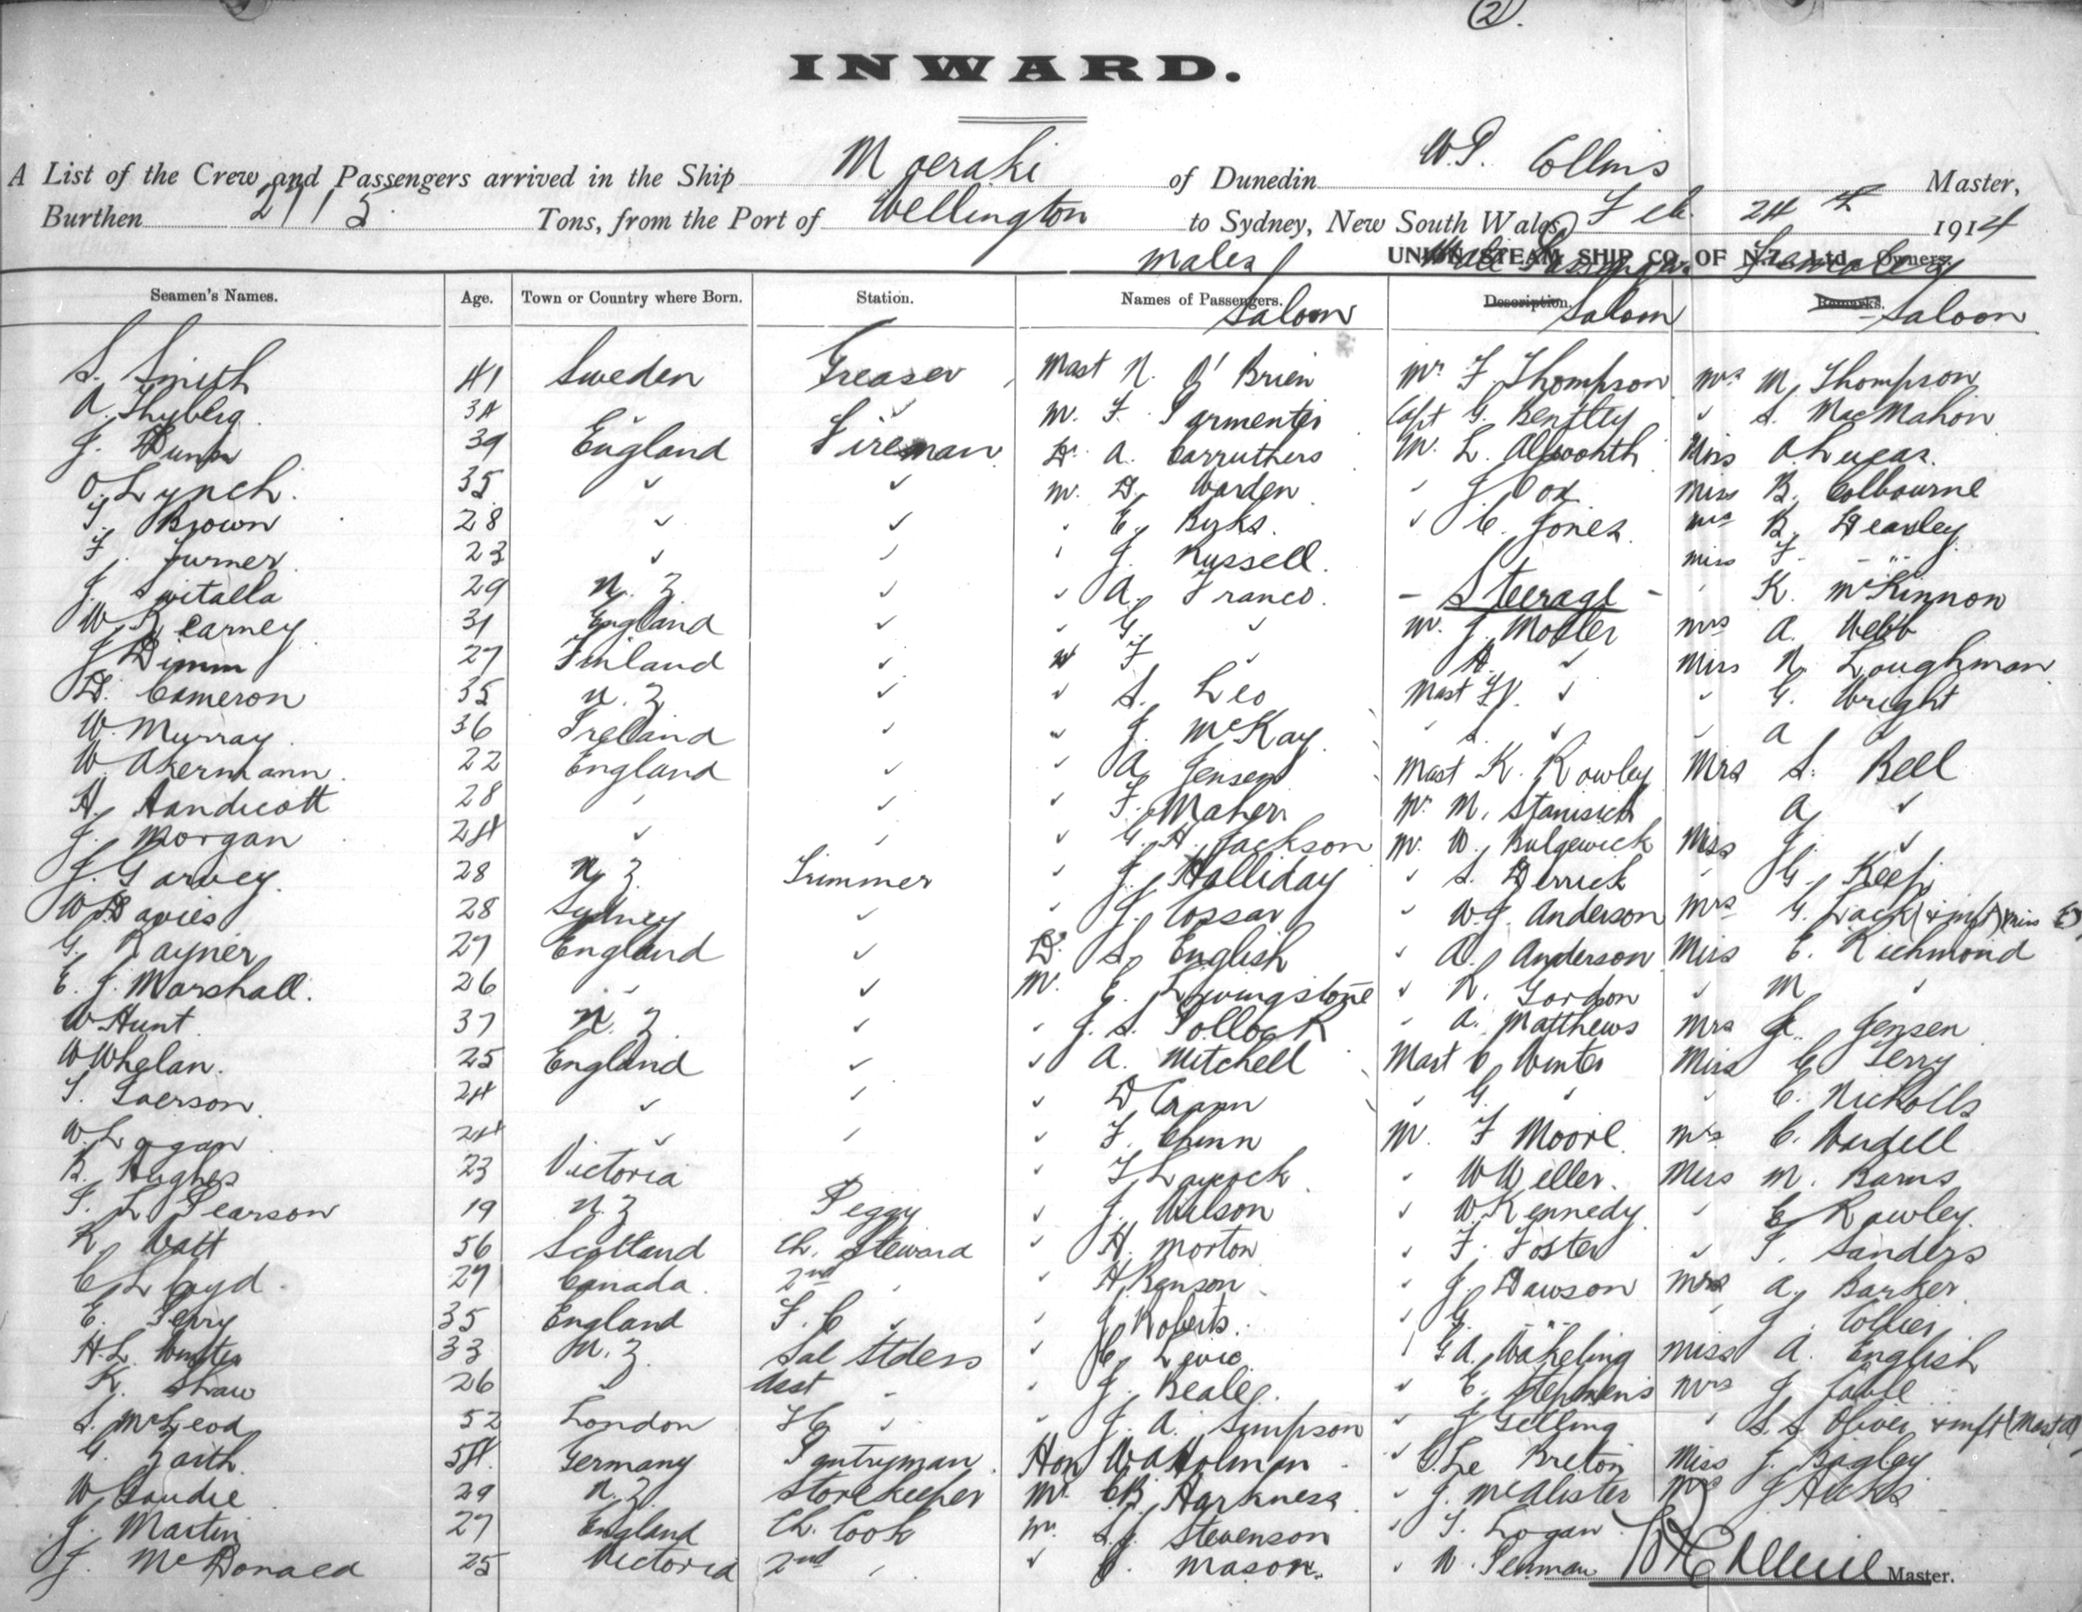 (2).
INWARD.
A List of the Crew and Passengers arrived in the Ship Moeraki of Dunedin W.P. Collins Master,
Burthen 2715 Tons, from the Port of Wellington to Sydney, New South Wales, Feb. 24th 1914
Males UNION STEAM SHIP CO. OF N.Z. Ltd. Owners. Females
Seamen's Names. Age. Town or Country where Born. Station. Names of Passengers. Description. Remarks.
Saloon Saloon - Saloon
S. Smith 41 Sweden Greaser Mast N. O'Brien Mr F Thompson Mrs M. Thompson
A. Thyberg 34 " " Mr. F. Parmenter Capt G. Bentley " S. MacMahon
J. Dunn 39 England Fireman Dr. A. Carruthers Mr. L. Allsworth Miss A. Lucas
O. Lynch 35 " " Mr. D. Warden " J Cox Miss B. Colbourne
T. Brown 28 " " " E. Byks " C. Jones Mrs B. Dearley
F. Turner 23 " " " J. Russell Miss F. "
J. Switalla 29 N.Z " " A. Franco - Steerage - " K. McKinnon
W Kearney 31 England " " G " Mr. J. Mosler Mrs A. Webb
J Dimm 27 Finland " " F " A " Miss N. Loughman
D. Cameron 35 N.Z " " S. Leo Mast " " G. Wright
W. Murray 36 Ireland " " J. McKay " S. " " A "
W. Akermann 22 England " " A. Jensen Mast K. Rowley Mrs S. Bell
H. Handicott 28 " " " F. Maher Mr M. Stanisich A "
J. Morgan 24 " " " G. H. Jackson Mr. W. Bulgewick Miss J. "
J. Garvey 28 N.Z Trimmer " J. Halliday " S. Derrick " G. Keep
W Davies 28 Sydney " " J. Cossar " W.J. Anderson Mrs G. Zack (& inft) & Miss E
G. Rayner 27 England " Dr. S. English " A. Anderson Miss E. Richmond
E. J. Marshall 26 " " Mr. E. Livingstone " R. Gordon " M "
W Hunt 37 N.Z " " J. S. Pollock " A. Matthews Mrs Jensen
W Whelan 25 England " " A. Mitchell Mast C Winter Miss C Terry
T. 24 " " " D Crann " G. " " E. Nicholls
W. Logan 24 " " " F. Chinn Mr. F Moore Mrs C. Wardell
R. Hughes 23 Victoria " T Laycock " W Weller Miss M. Barns
T. L Pearson 19 N.Z Peggy " J. Wilson " W. Kennedy " E Rowley
R. Watt 56 Scotland Ch. Steward " H. Morton " F. Foster " T. Sanders
C Lloyd 27 Canada 2nd " " H Benson " J. Dawson Mrs A. Barker
E. Perry 35 England F. C " " J Roberts " G. " " J. Collier
H.L. Winter 33 N.Z. Sal Stdess " C. Levic " G A. Wakeling Miss A. English
K. Shaw 26 " Asst " " J. Beale " E. Stephens Mrs J. Cable
S. McLeod 52 London F C " " J. A. Simpson " J Gelling " S. S. Oliver & inft (Mast A)
G. Zaith 54 Germany Pantryman Hon W A Holman " C. Le Breton Miss J. Bagley
W Goudie 29 N.Z. Storekeeper Mr. C B. Harkness " J. McAlister Mrs J Hicks
J. Martin 27 England Ch. Cook Mr. S. J. Stevenson " T. Logan
J. McDonald 25 Victoria 2nd " " Mason " W. Penman Master.